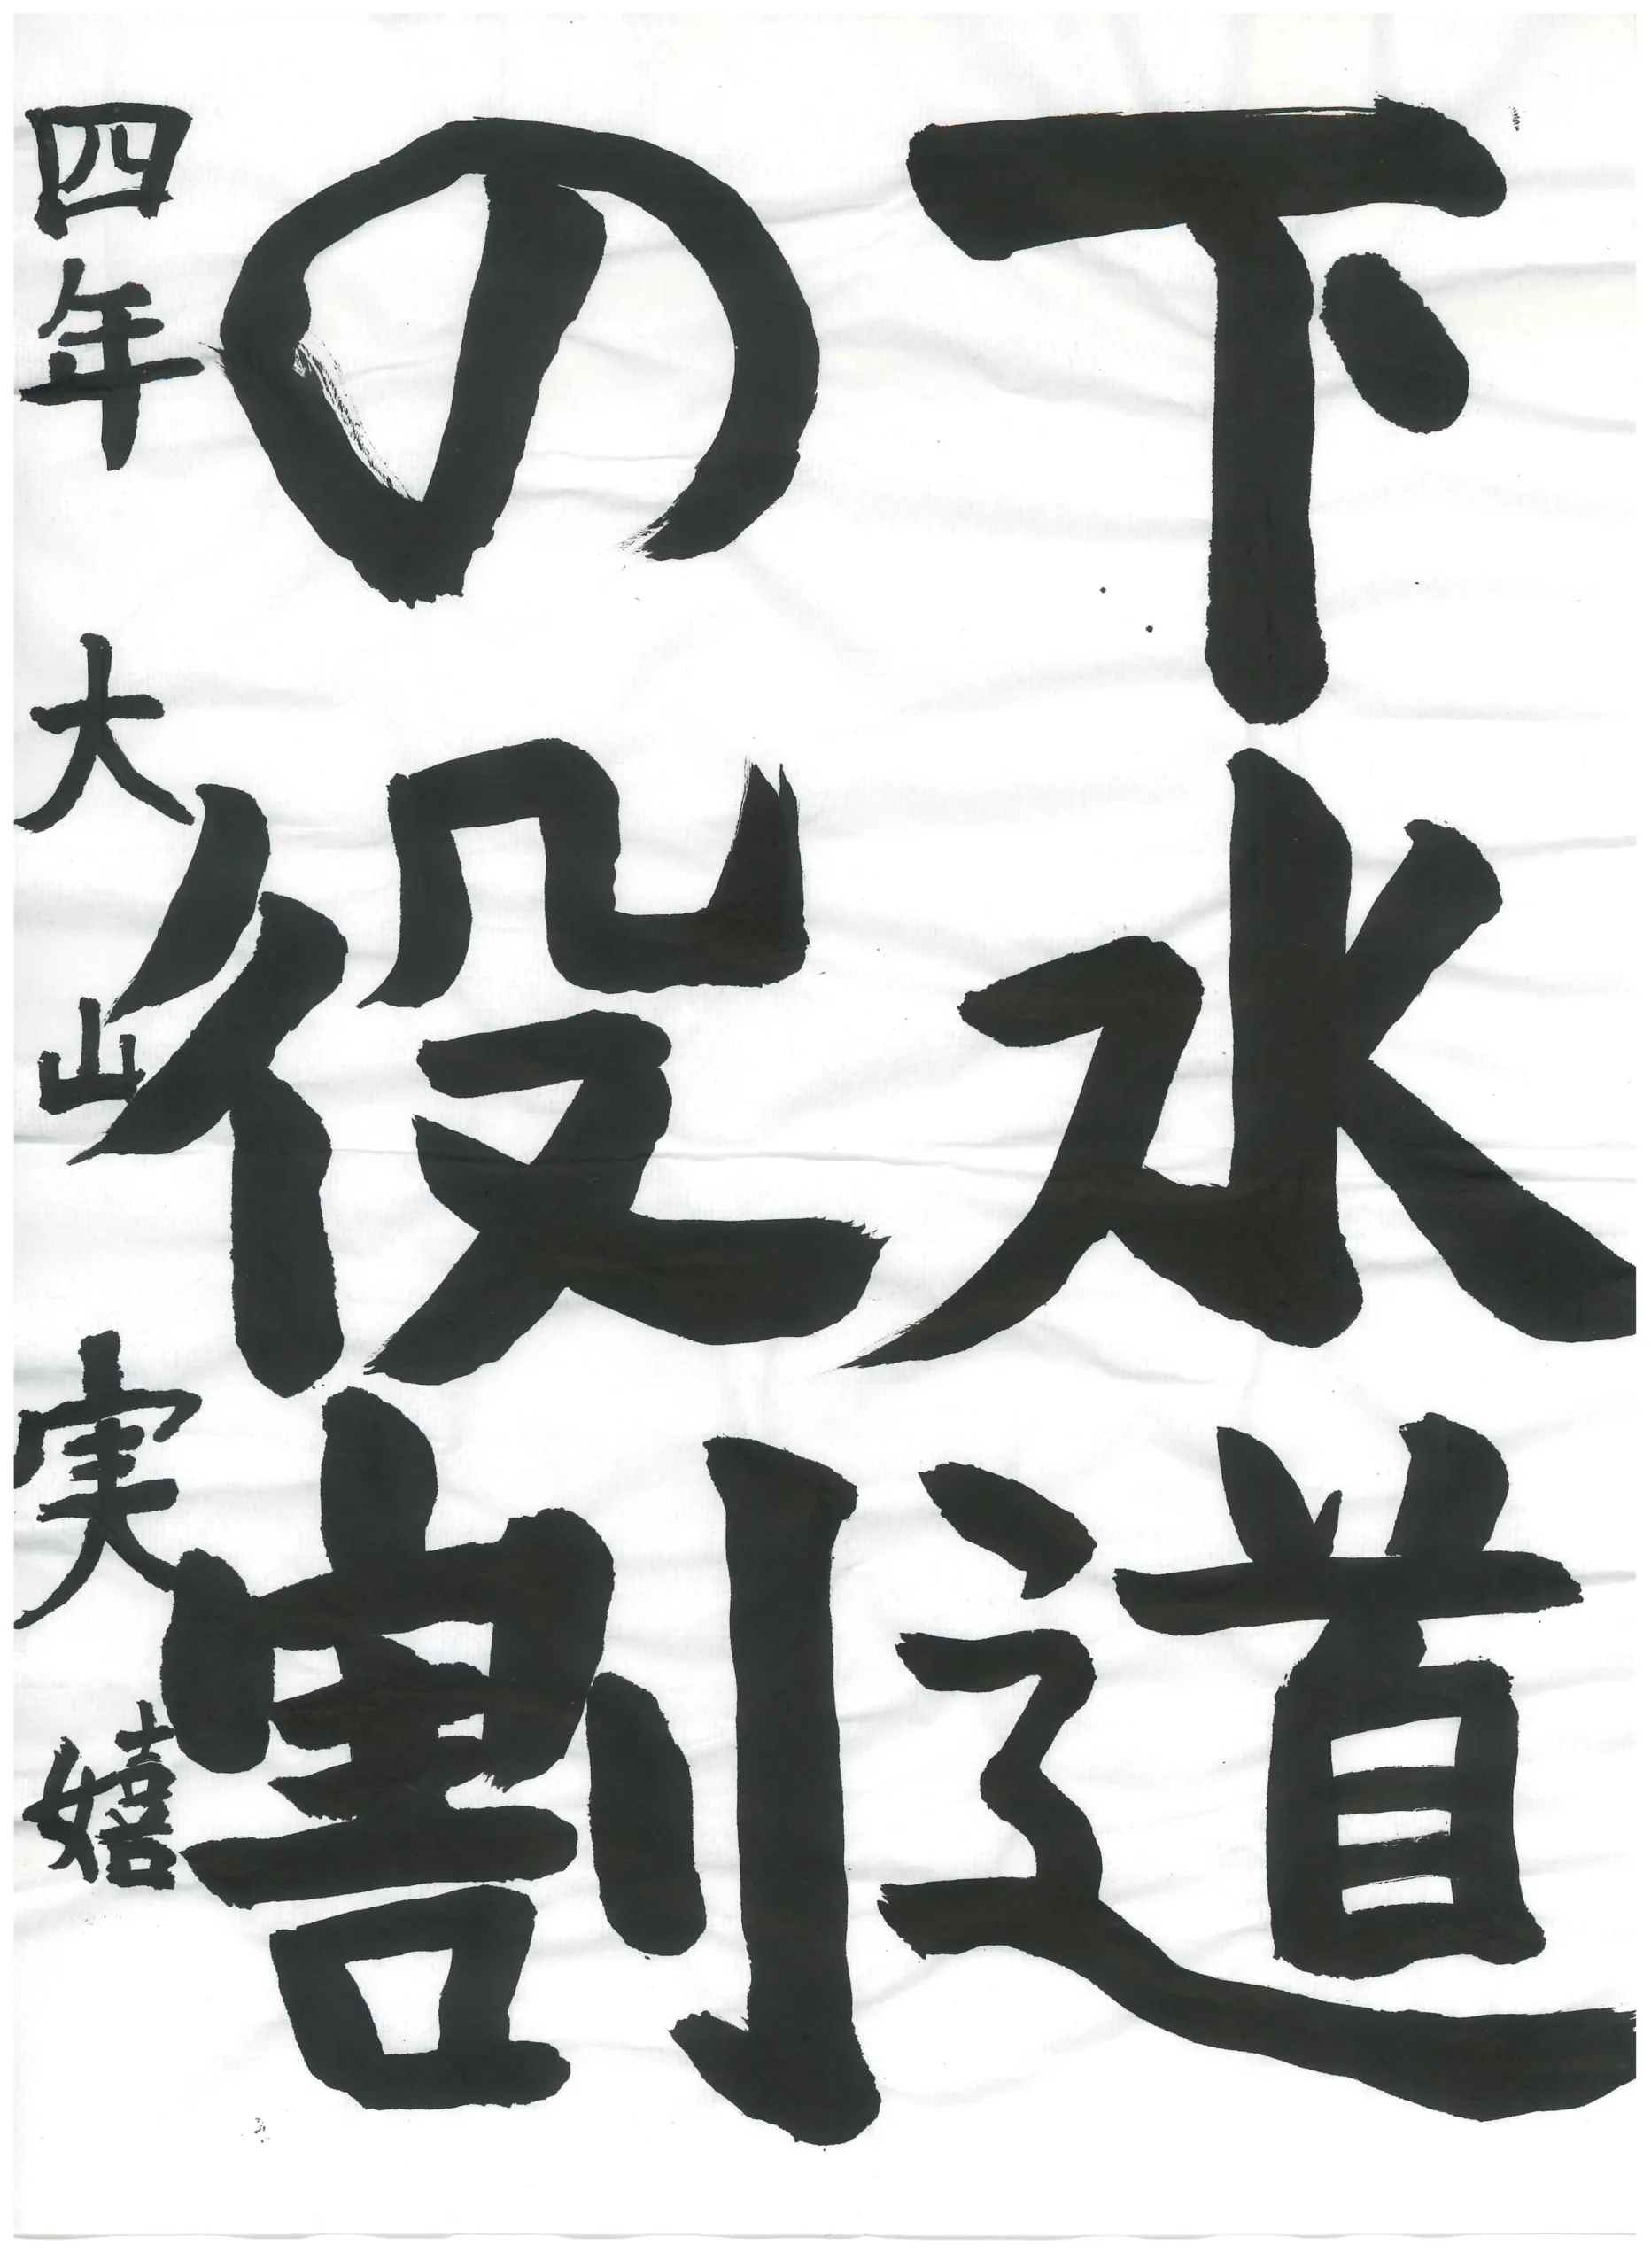 下水道
の役割
四年 大山 実嬉